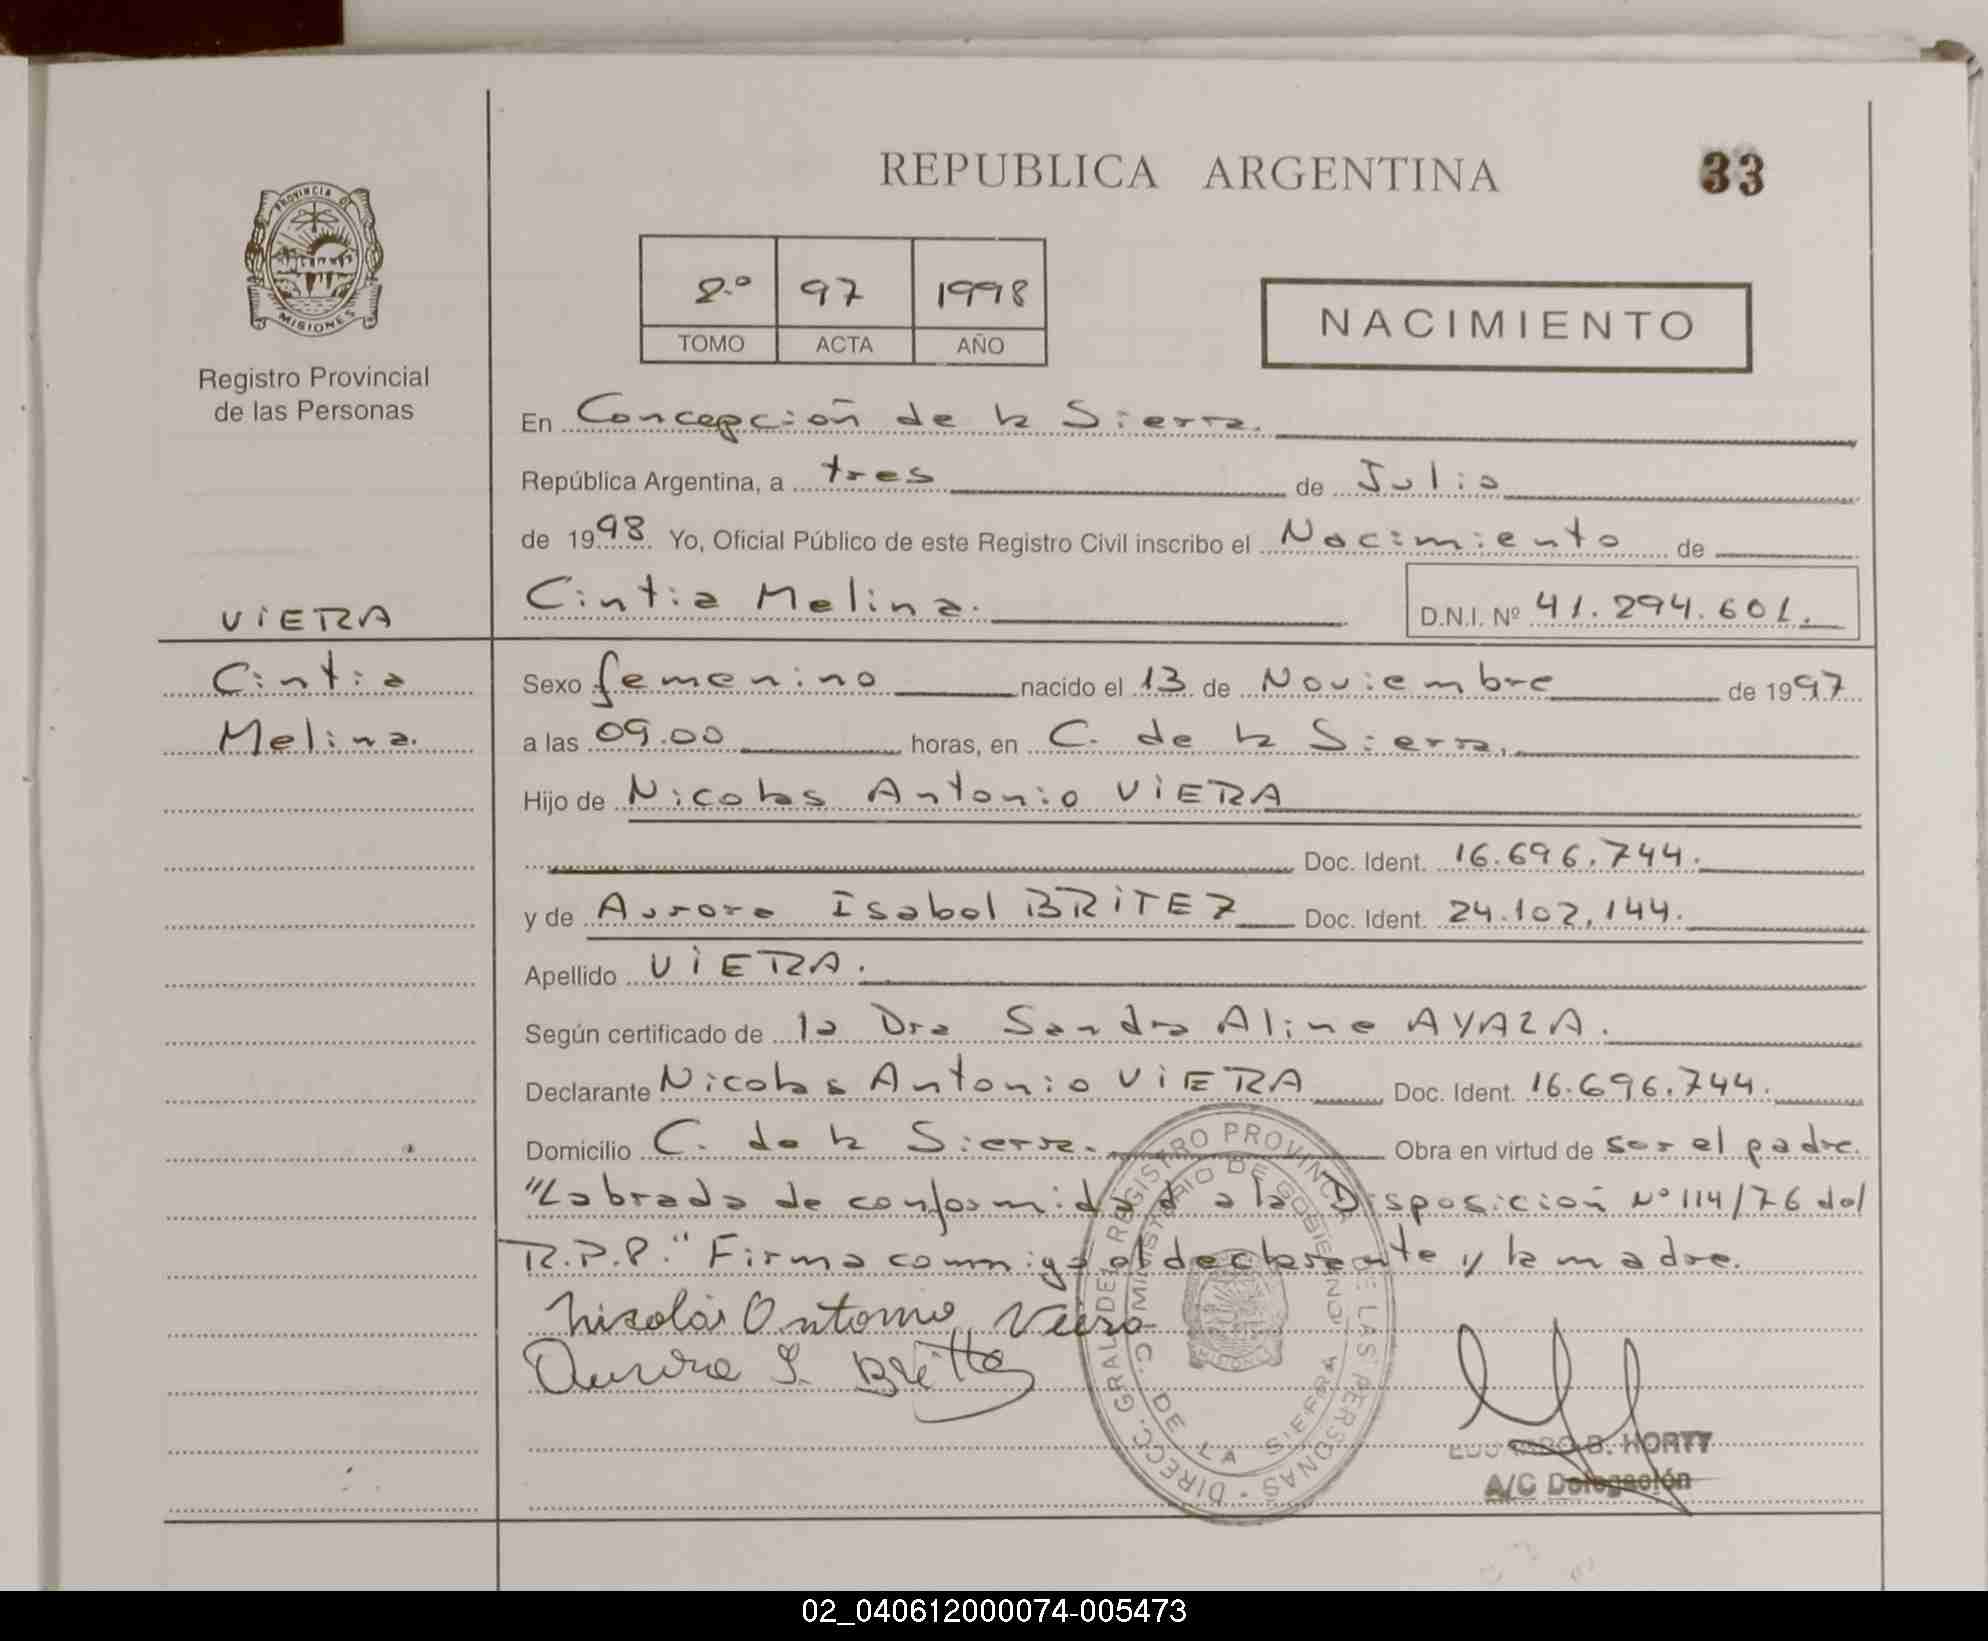 REPUBLICA ARGENTINA
33
PROVINCIA DE
MISIONES
Registro Provincial
de las Personas
2.º 97 1998
TOMO ACTA AÑO
NACIMIENTO
En Concepción de la Sierra.
República Argentina, a tres de Julio
de 1998 Yo, Oficial Público de este Registro Civil inscribo el Nacimiento de
Cintia Melina. D.N.I. Nº 41.294.601.
VIERA
Cintia
Melina.
Sexo femenino nacido el 13 de Noviembre de 1997
a las 09.00 horas, en C. de la Sierra.
Hijo de Nicolas Antonio VIERA
Doc. Ident. 16.696.744.
y de Aurora Isabel BRITEZ Doc. Ident. 24.102.144.
Apellido VIERA.
Según certificado de la Dra Sandra Aline AYALA.
Declarante Nicolas Antonio VIERA Doc. Ident. 16.696.744.
Domicilio C. de la Sierra. Obra en virtud de ser el padre.
"Labrada de conformidad a la Disposición Nº 114/76 del
R.P.P." Firma conmigo el declarante y la madre.
Nicolás Antonio Viera
Aurora I. Brittez
DIRECC. GRAL DEL REGISTRO PROVINCIAL DE LAS PERSONAS
MINISTERIO DE GOBIERNO
C. DE LA SIERRA
EDUARDO B. HORTT
A/C Delegación
02_040612000074-005473